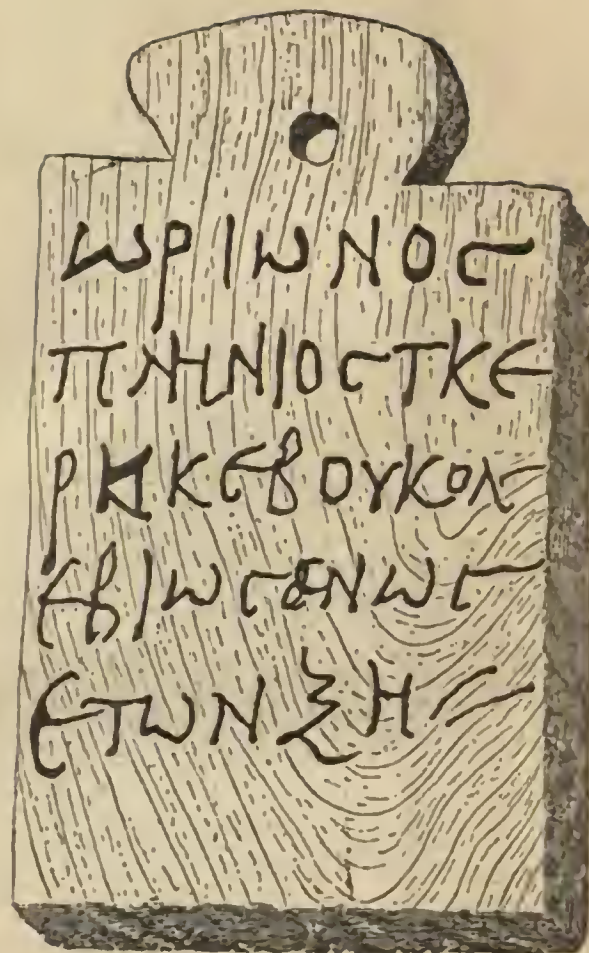 ωριωνος
πληνιοςτκε
ρηκεβουκολ
εβιωσενως
ετωνξη